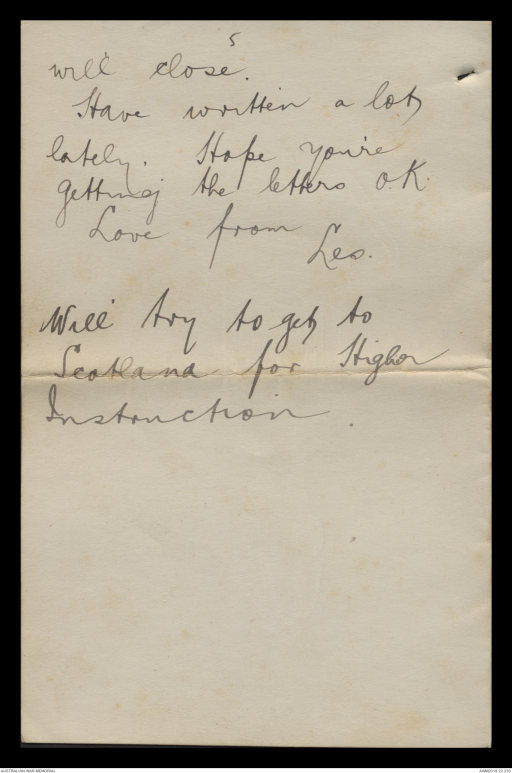 5
will close.
Have written a lot
lately. Hope you're
getting the letters O.K.
Love from
Les.
Will try to get to
Scotland for Higher
Instruction.
AUSTRALIAN WAR MEMORIAL